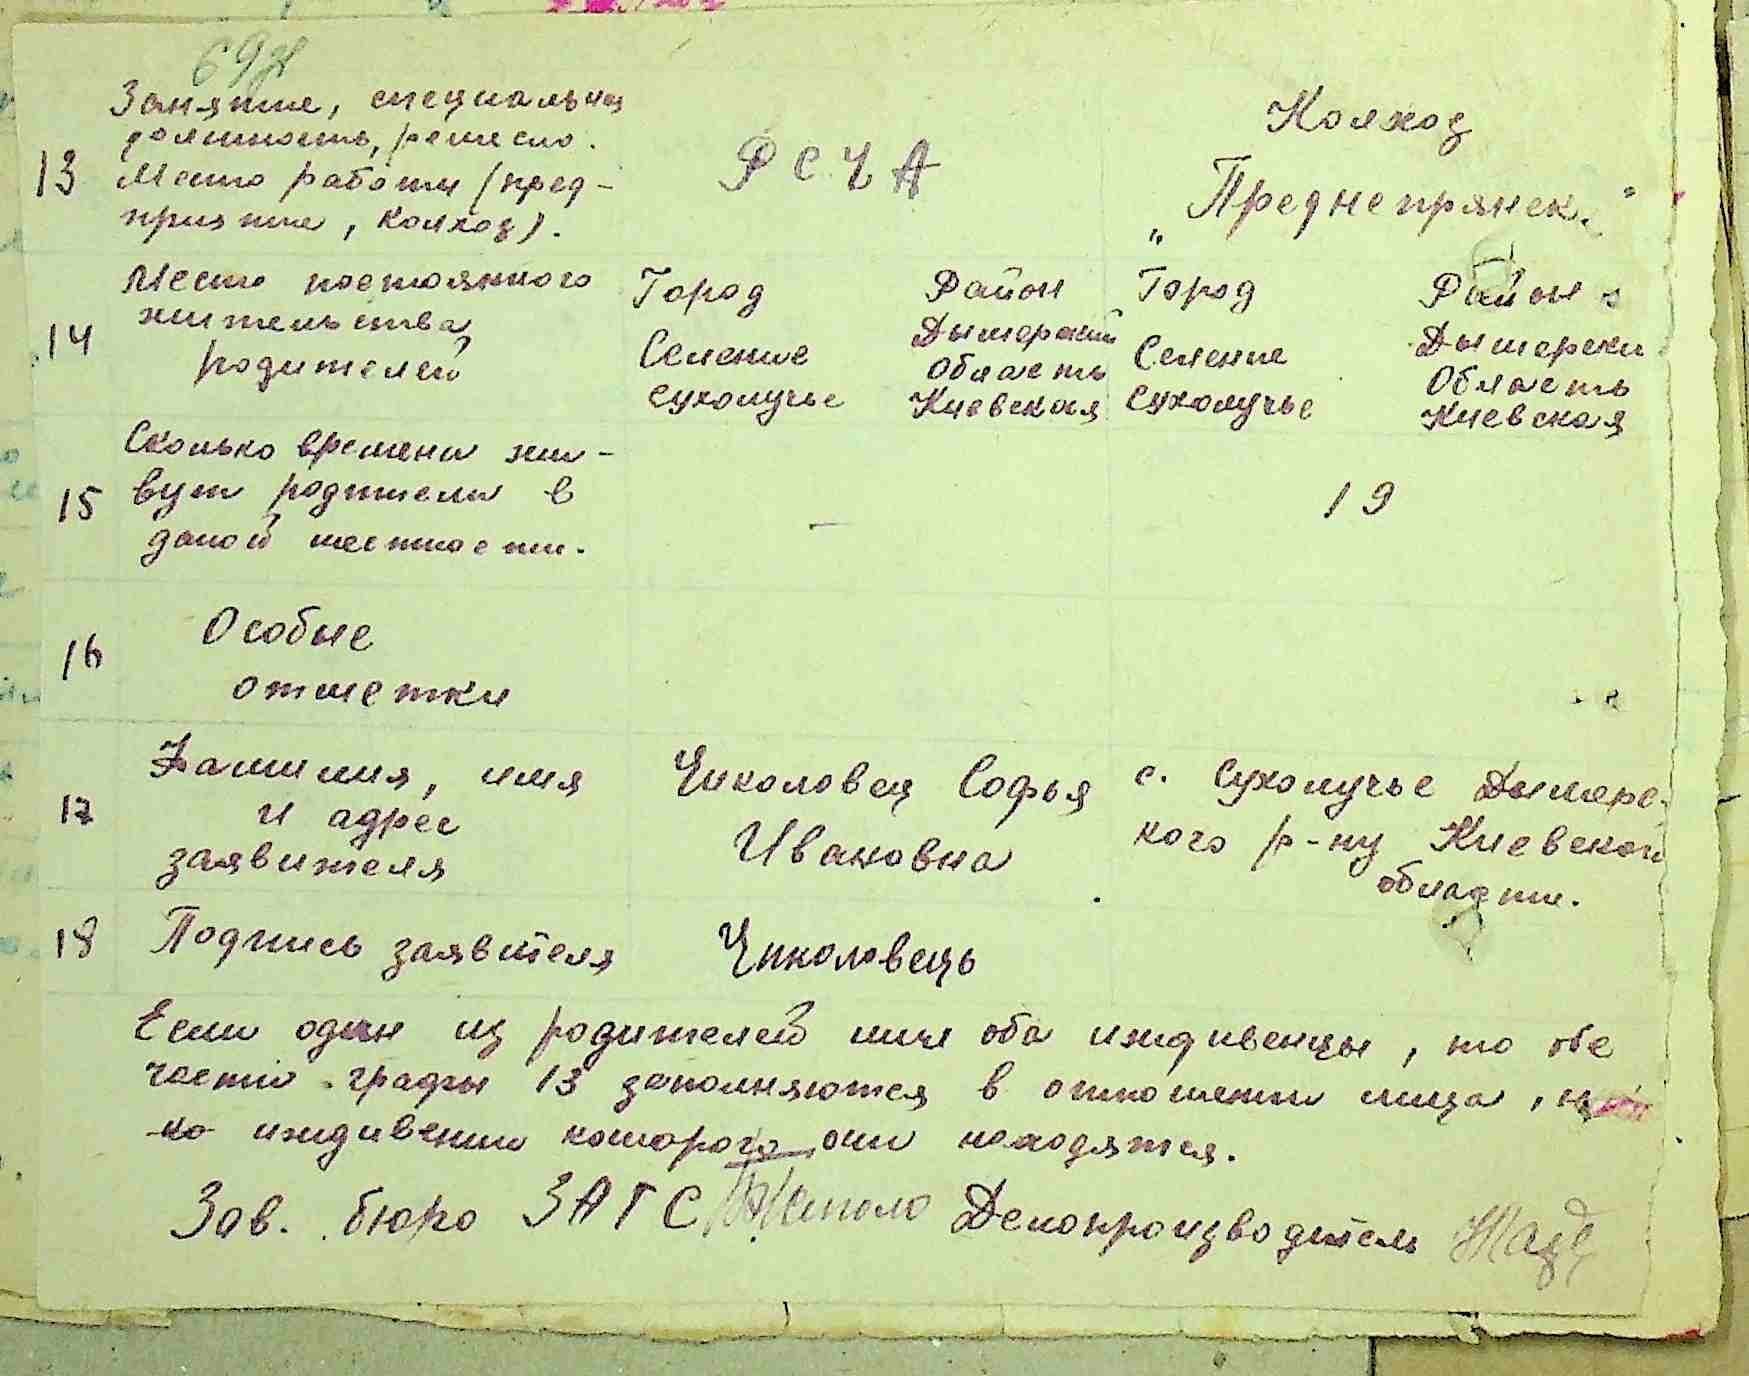 Занятие, специальная
должность, ремесло.
13 Место работы (пред-
приятие, колхоз).
РСЧА
Колхоз
„Преднепрянск."
Место постоянного
14 жительства
родителей
Город Район
Дымерский
Селение Область
Сухолучье Киевская
Город Район
Дымерски
Селение Область
Сухолучье Киевская
Сколько времени жи-
15 вут родители в
даной местности.
—
19
16 Особые
отметки
Фамилия, имя
17 и адрес
заявителя
Чиколовец Софья
Ивановна
с. Сухолучье Дымерс-
кого р-ну Киевской
области.
18 Подпись заявителя Чиколовець
Если один из родителей или оба иждивенцы, то обе
части графы 13 заполняются в отношении лица, н
ко иждивении которого они находятся.
Зав. бюро ЗАГС Делопроизводитель